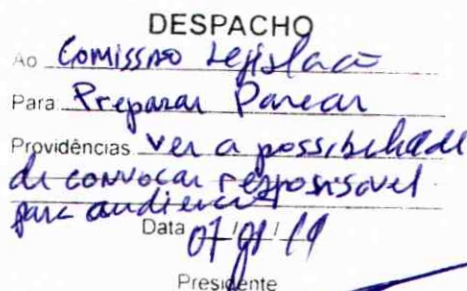 DESPACHO
Ao Comissão Legislacao
Para Preparar Parecer
Providências Ver a possibilidade
de convocar responsável
para audiencia
Data 07/01/19
Presidente